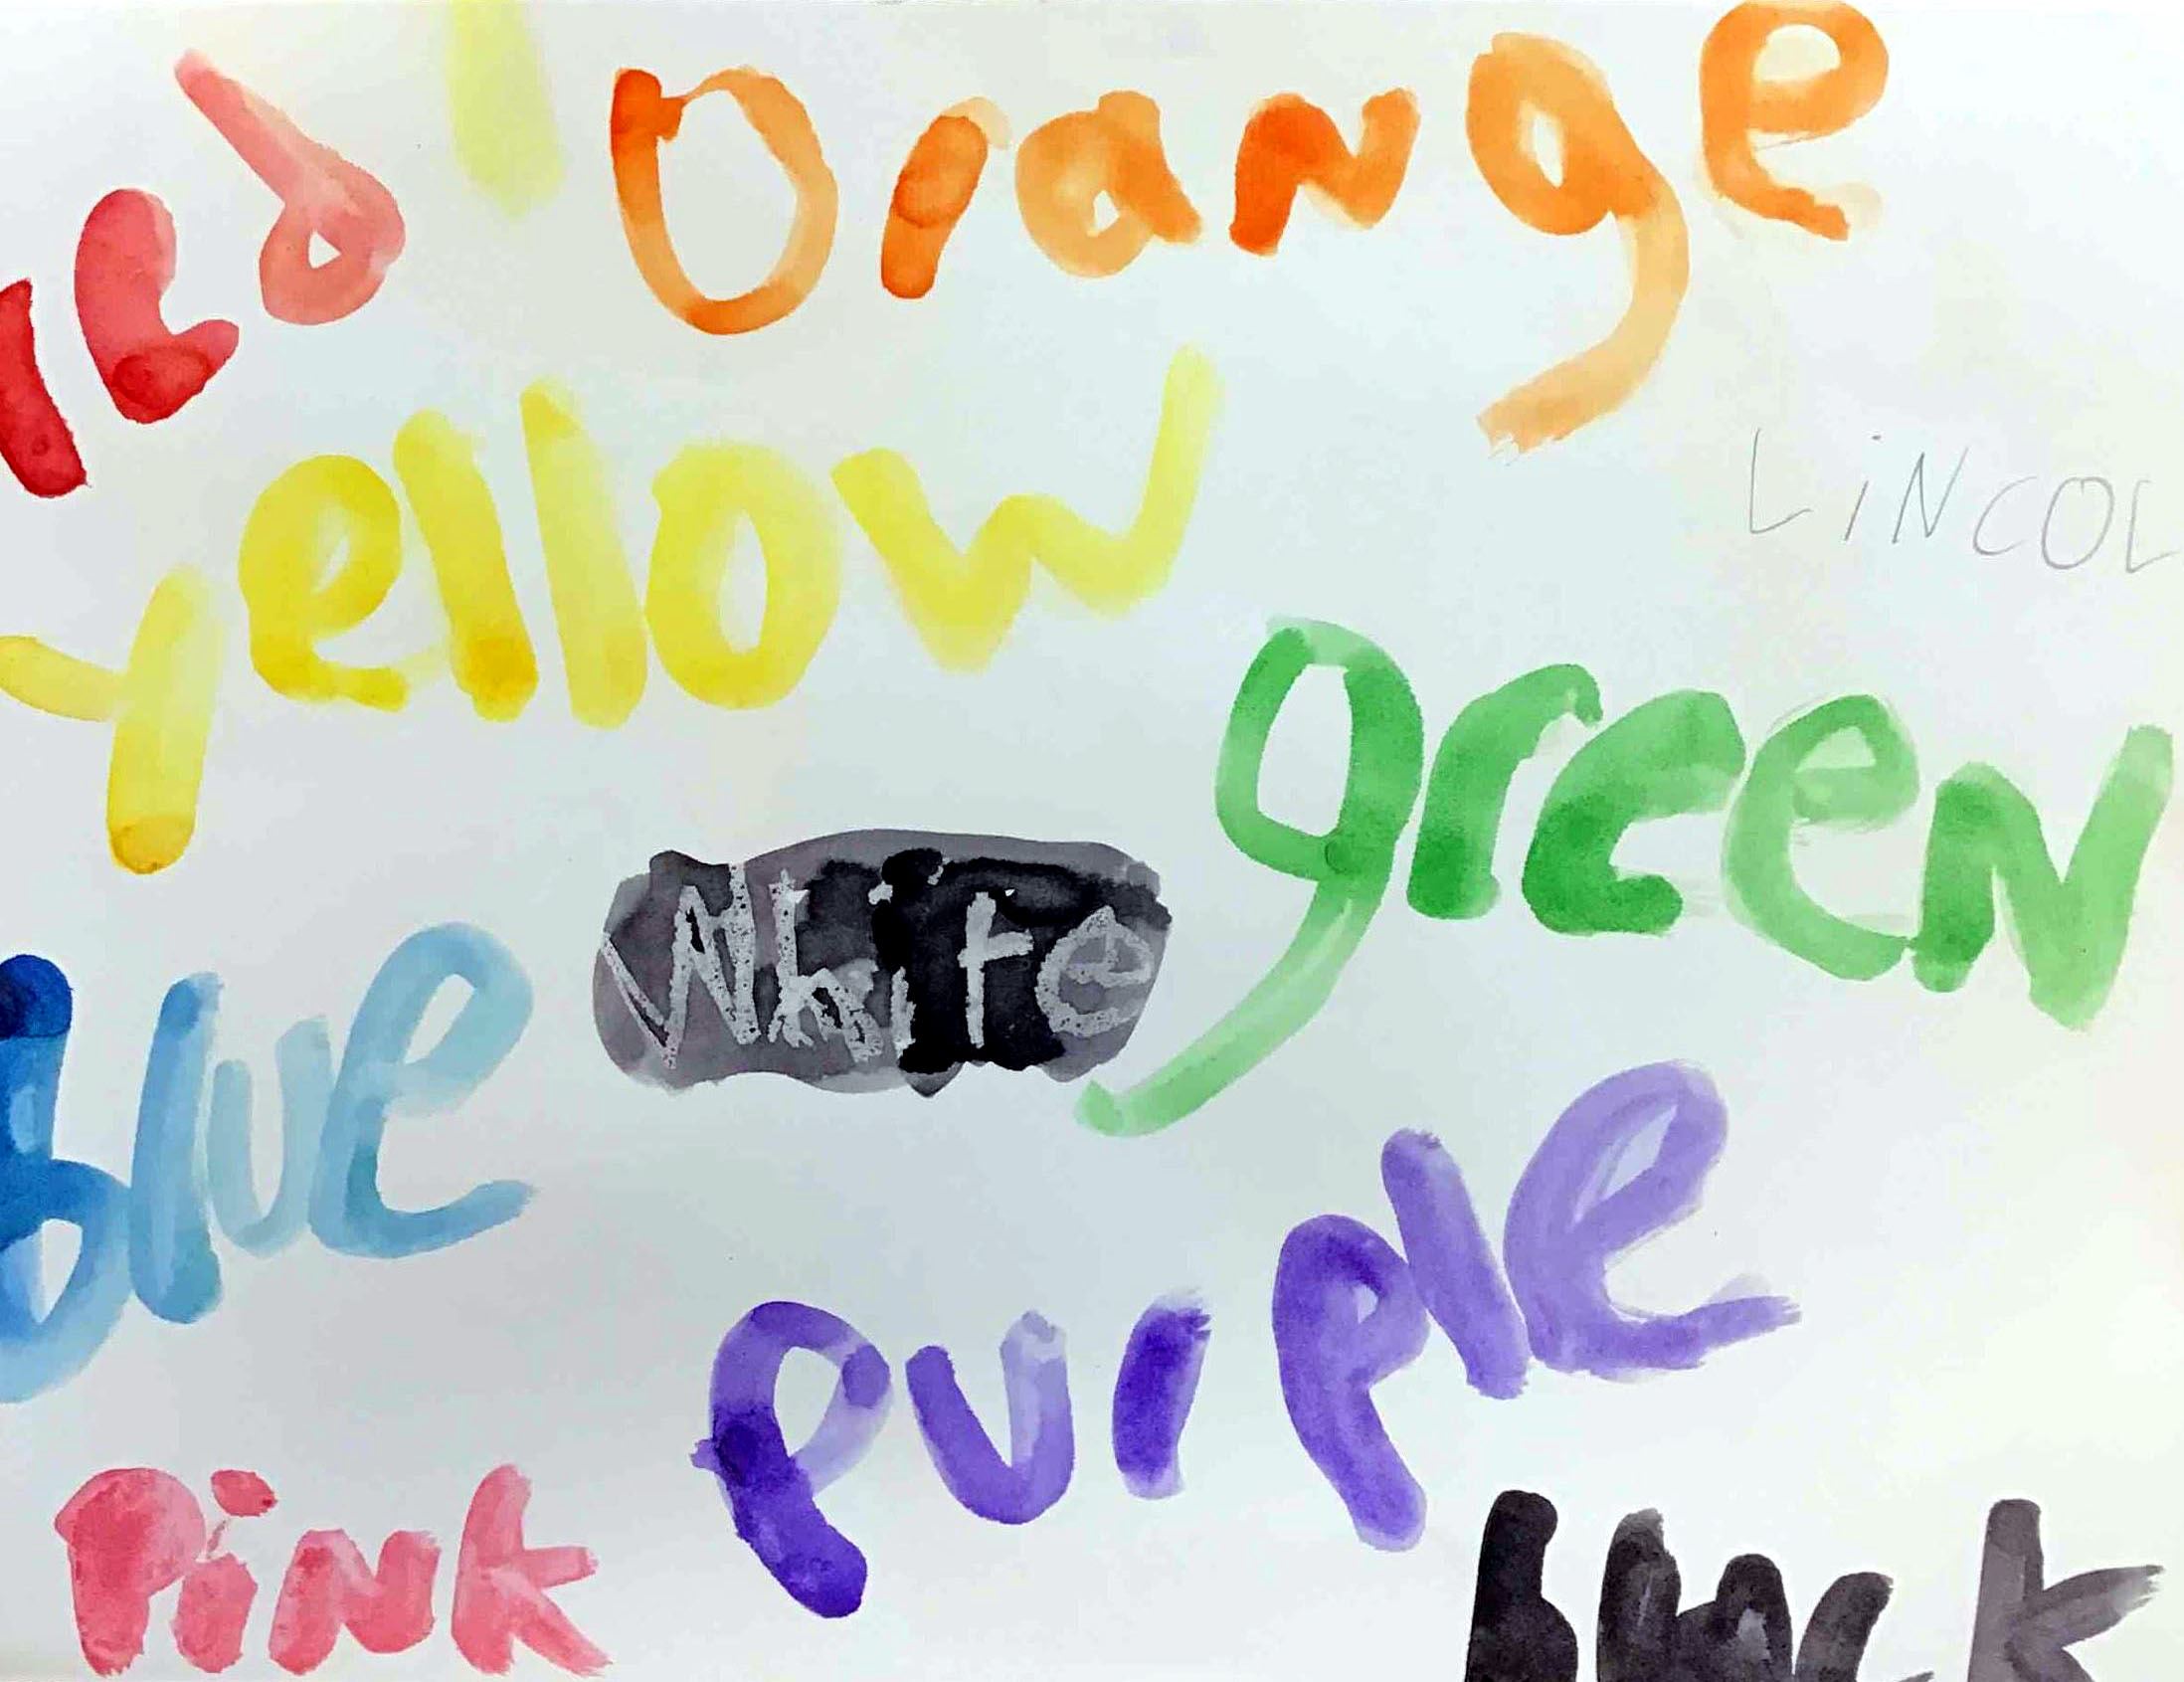 red Orange
yellow
LiNCOL
green
White
Blue
purple
Pink
black